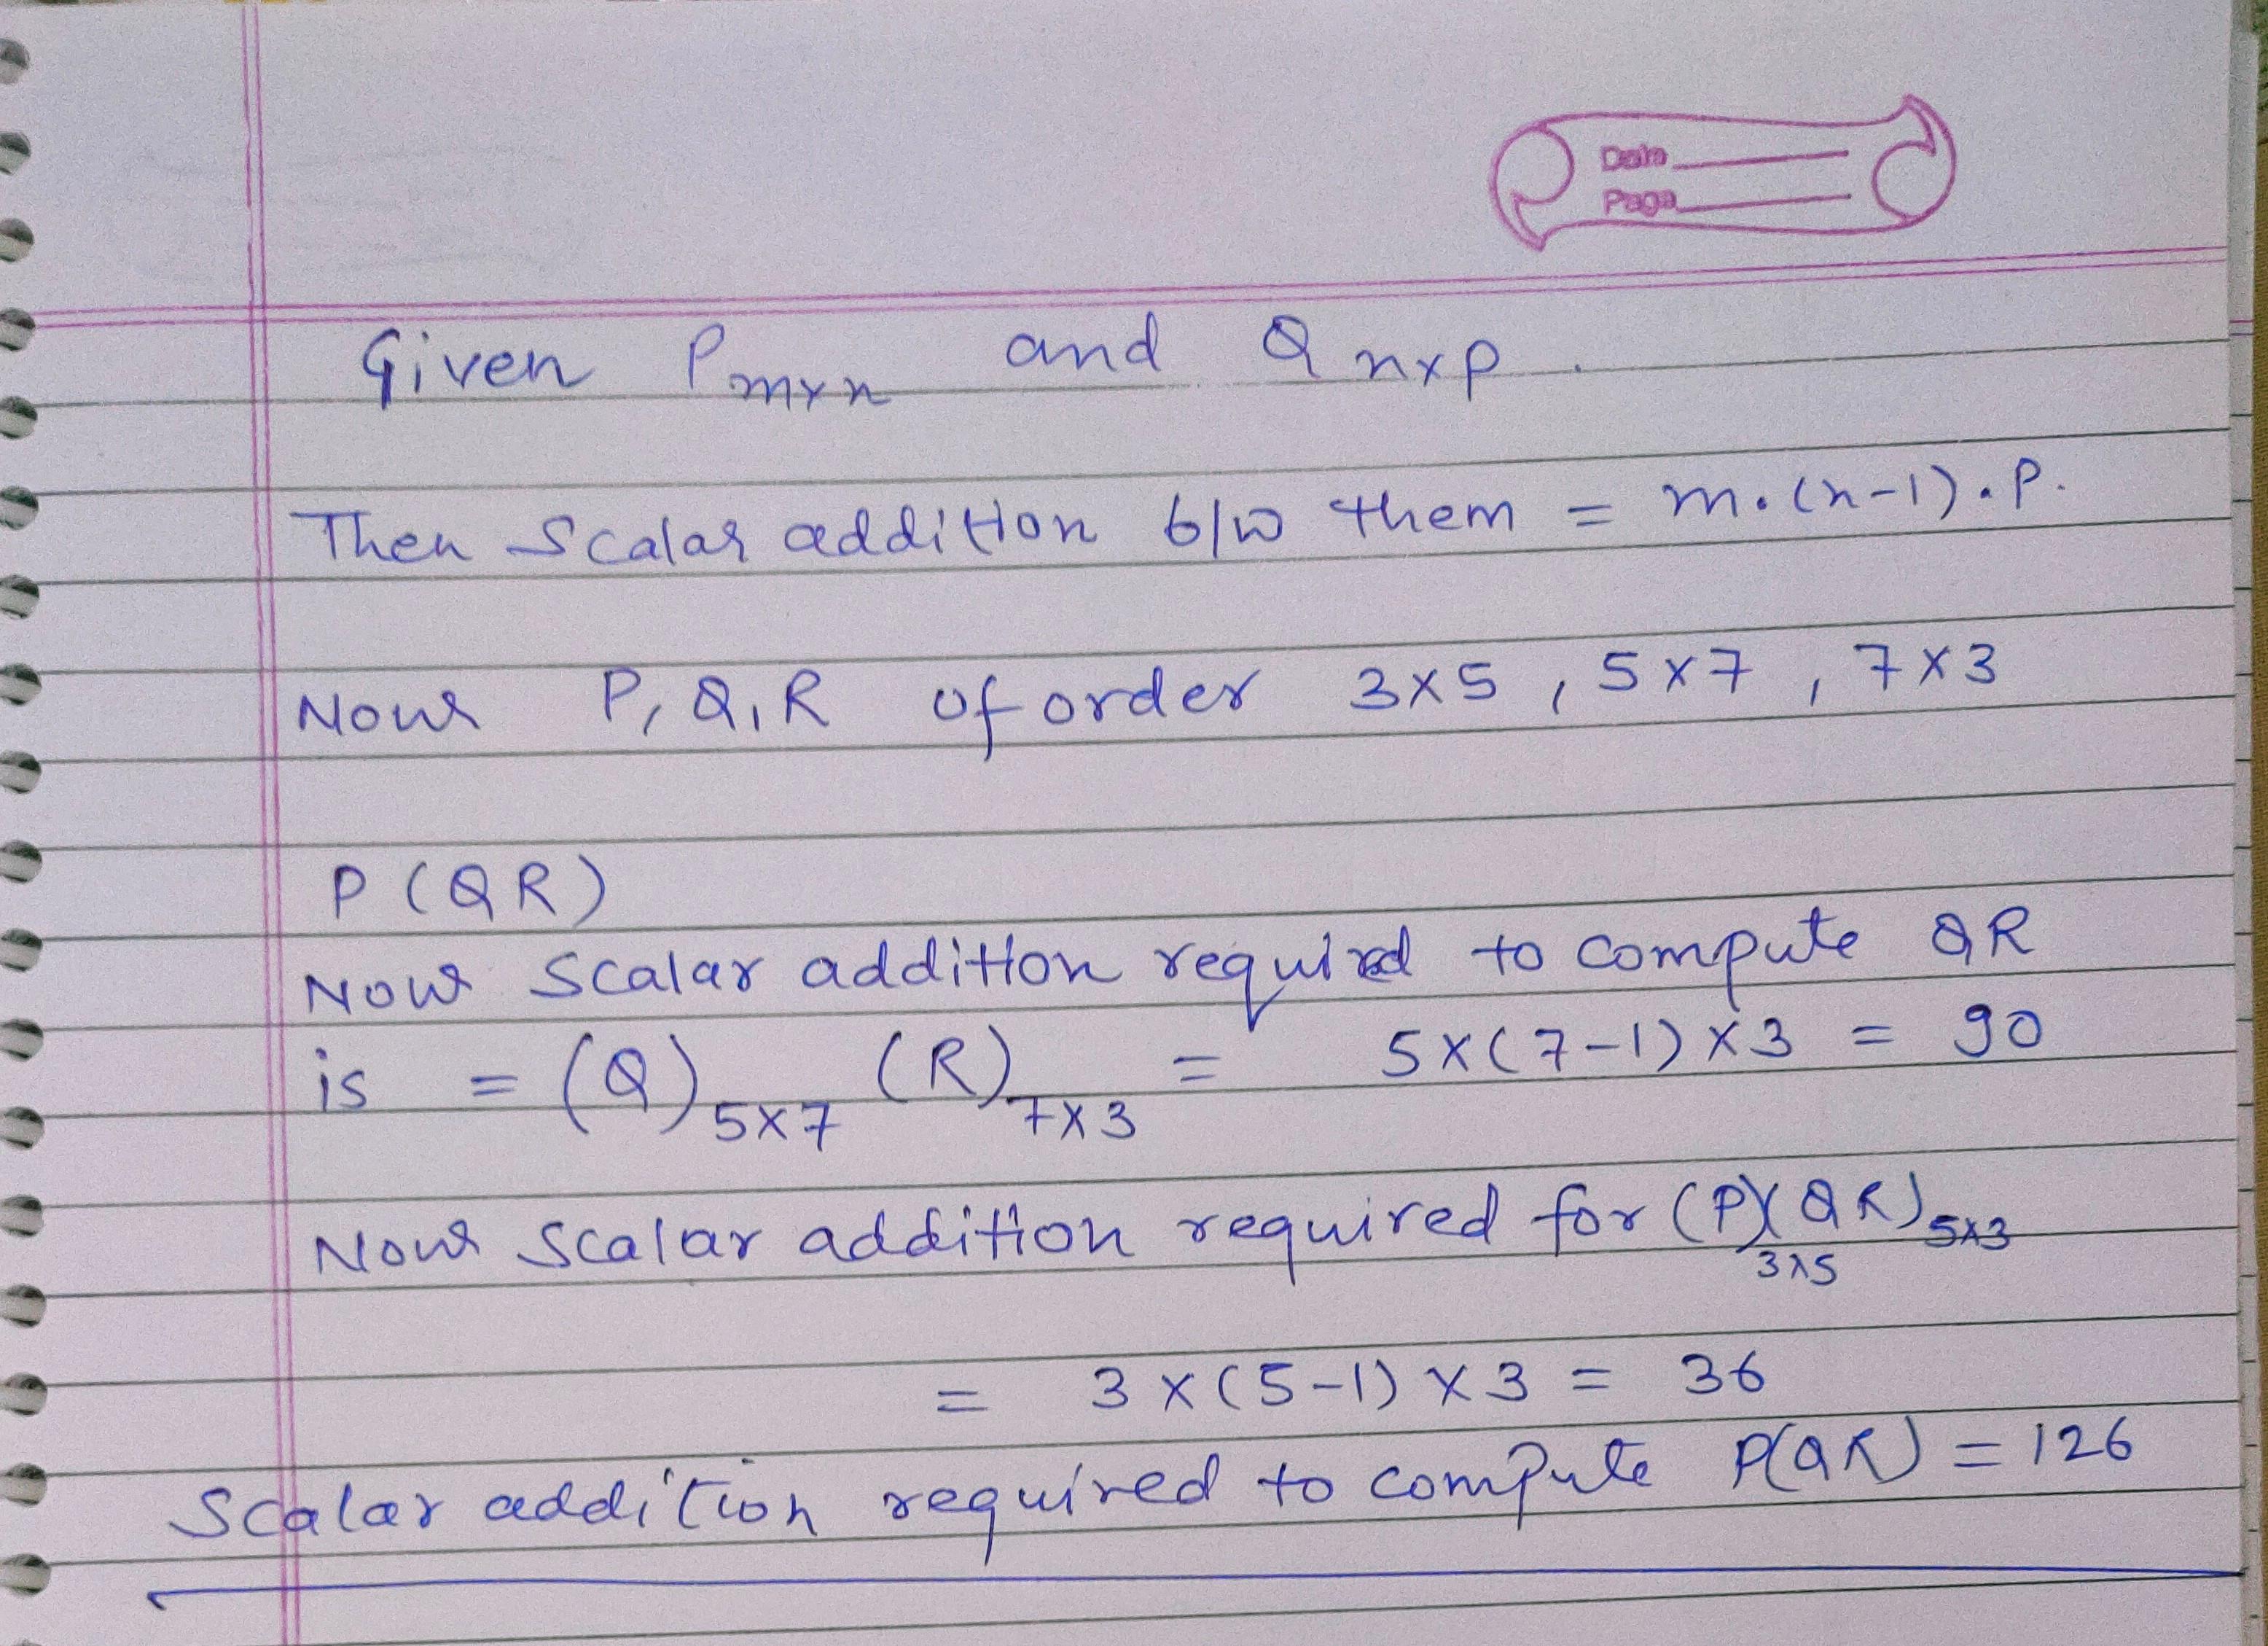 Date
Page
Given P m×n and Q n×p.
Then Scalar addition b/w them = m.(n-1).p.
Now P, Q, R of order 3×5, 5×7, 7×3
P(QR)
Now Scalar addition required to compute QR
is = (Q)5×7 (R)7×3 = 5×(7-1)×3 = 90
Now Scalar addition required for (P)3×5(QR)5×3
= 3×(5-1)×3 = 36
Scalar addition required to compute P(QR) = 126